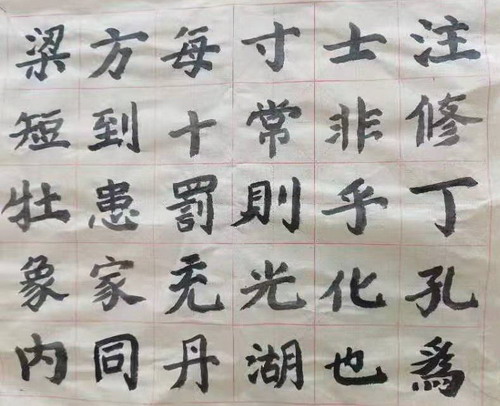 梁方每寸士注
短到十常非修
牡患罰則乎丁
象家充光化孔
内同丹湖也為